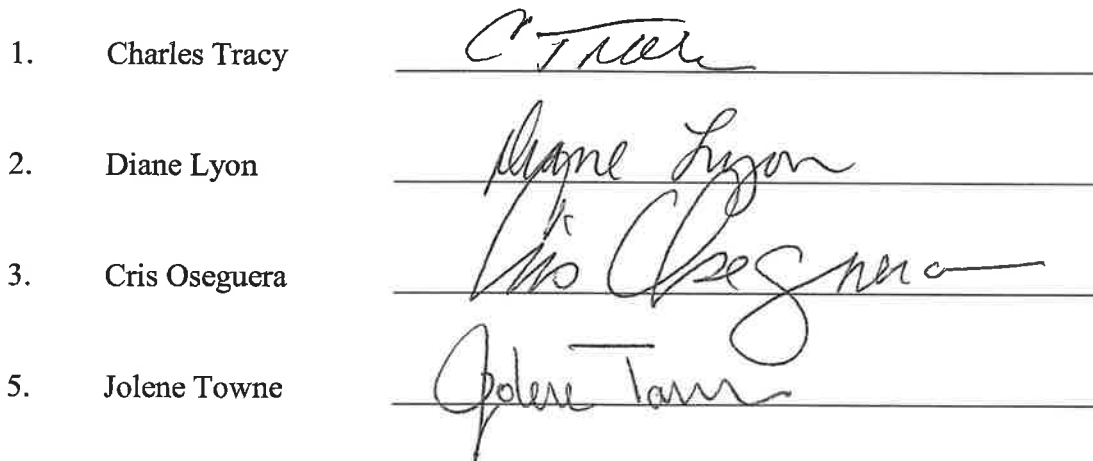 1. Charles Tracy C Tracy
2. Diane Lyon Diane Lyon
3. Cris Oseguera Cris Oseguera
5. Jolene Towne Jolene Towne